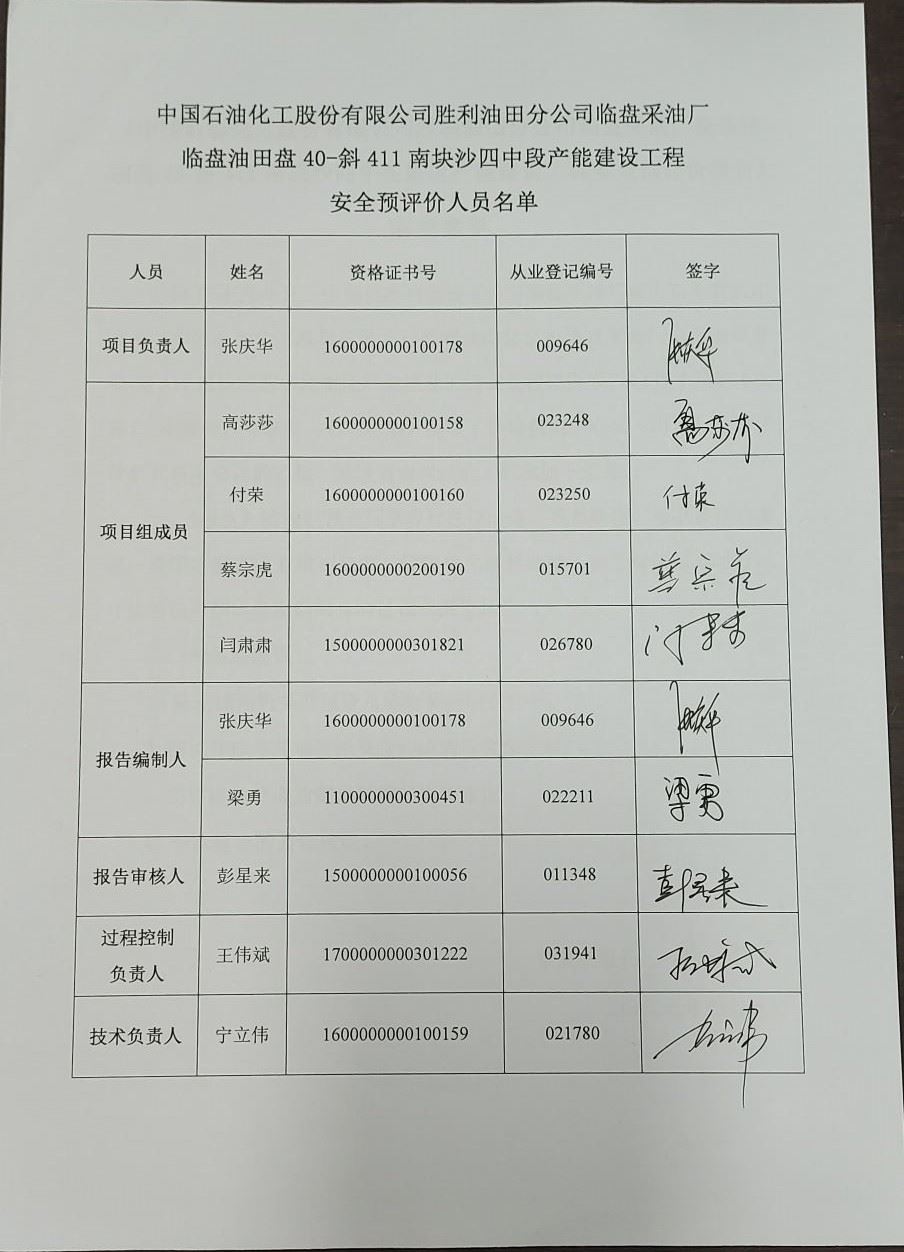 中国石油化工股份有限公司胜利油田分公司临盘采油厂
临盘油田盘 40-斜 411 南块沙四中段产能建设工程
安全预评价人员名单
人员 姓名 资格证书号 从业登记编号 签字
项目负责人 张庆华 1600000000100178 009646
项目组成员 高莎莎 1600000000100158 023248 高莎莎
付荣 1600000000100160 023250 付荣
蔡宗虎 1600000000200190 015701 蔡宗虎
闫肃肃 1500000000301821 026780
报告编制人 张庆华 1600000000100178 009646
梁勇 1100000000300451 022211 梁勇
报告审核人 彭星来 1500000000100056 011348 彭星来
过程控制
负责人 王伟斌 1700000000301222 031941
技术负责人 宁立伟 1600000000100159 021780